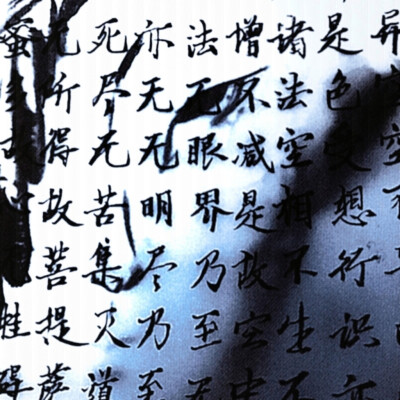 异
是色受想行识亦
诸法空相不生不
增不减是故空中
法无眼界乃至无
亦无无明尽乃至
死尽无苦集灭道
无所得故菩提萨
多故